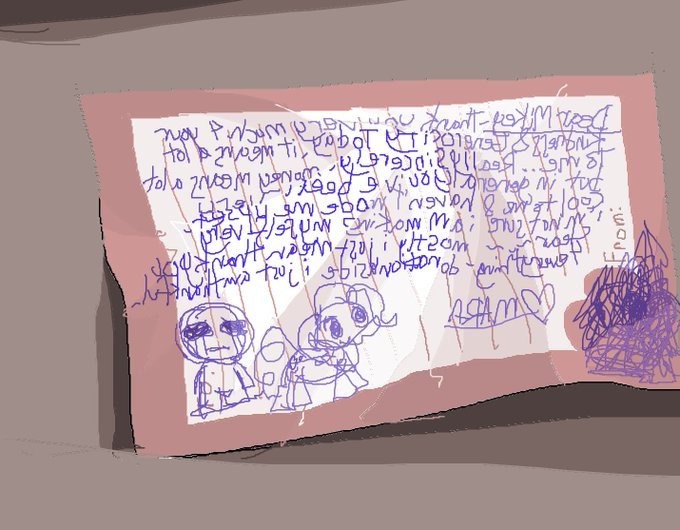 Dear Mikey - thank you very much, 4 your
kindness & generosity Today, it means a lot
to me... sincerely, money means a lot
but in general you've been
cool to me & haven't made me upset
i'm not sure i am making myself very
clear ~ ~ mostly i just mean thank you
everything - donation aside i just am thankful~
♡MARA
From: